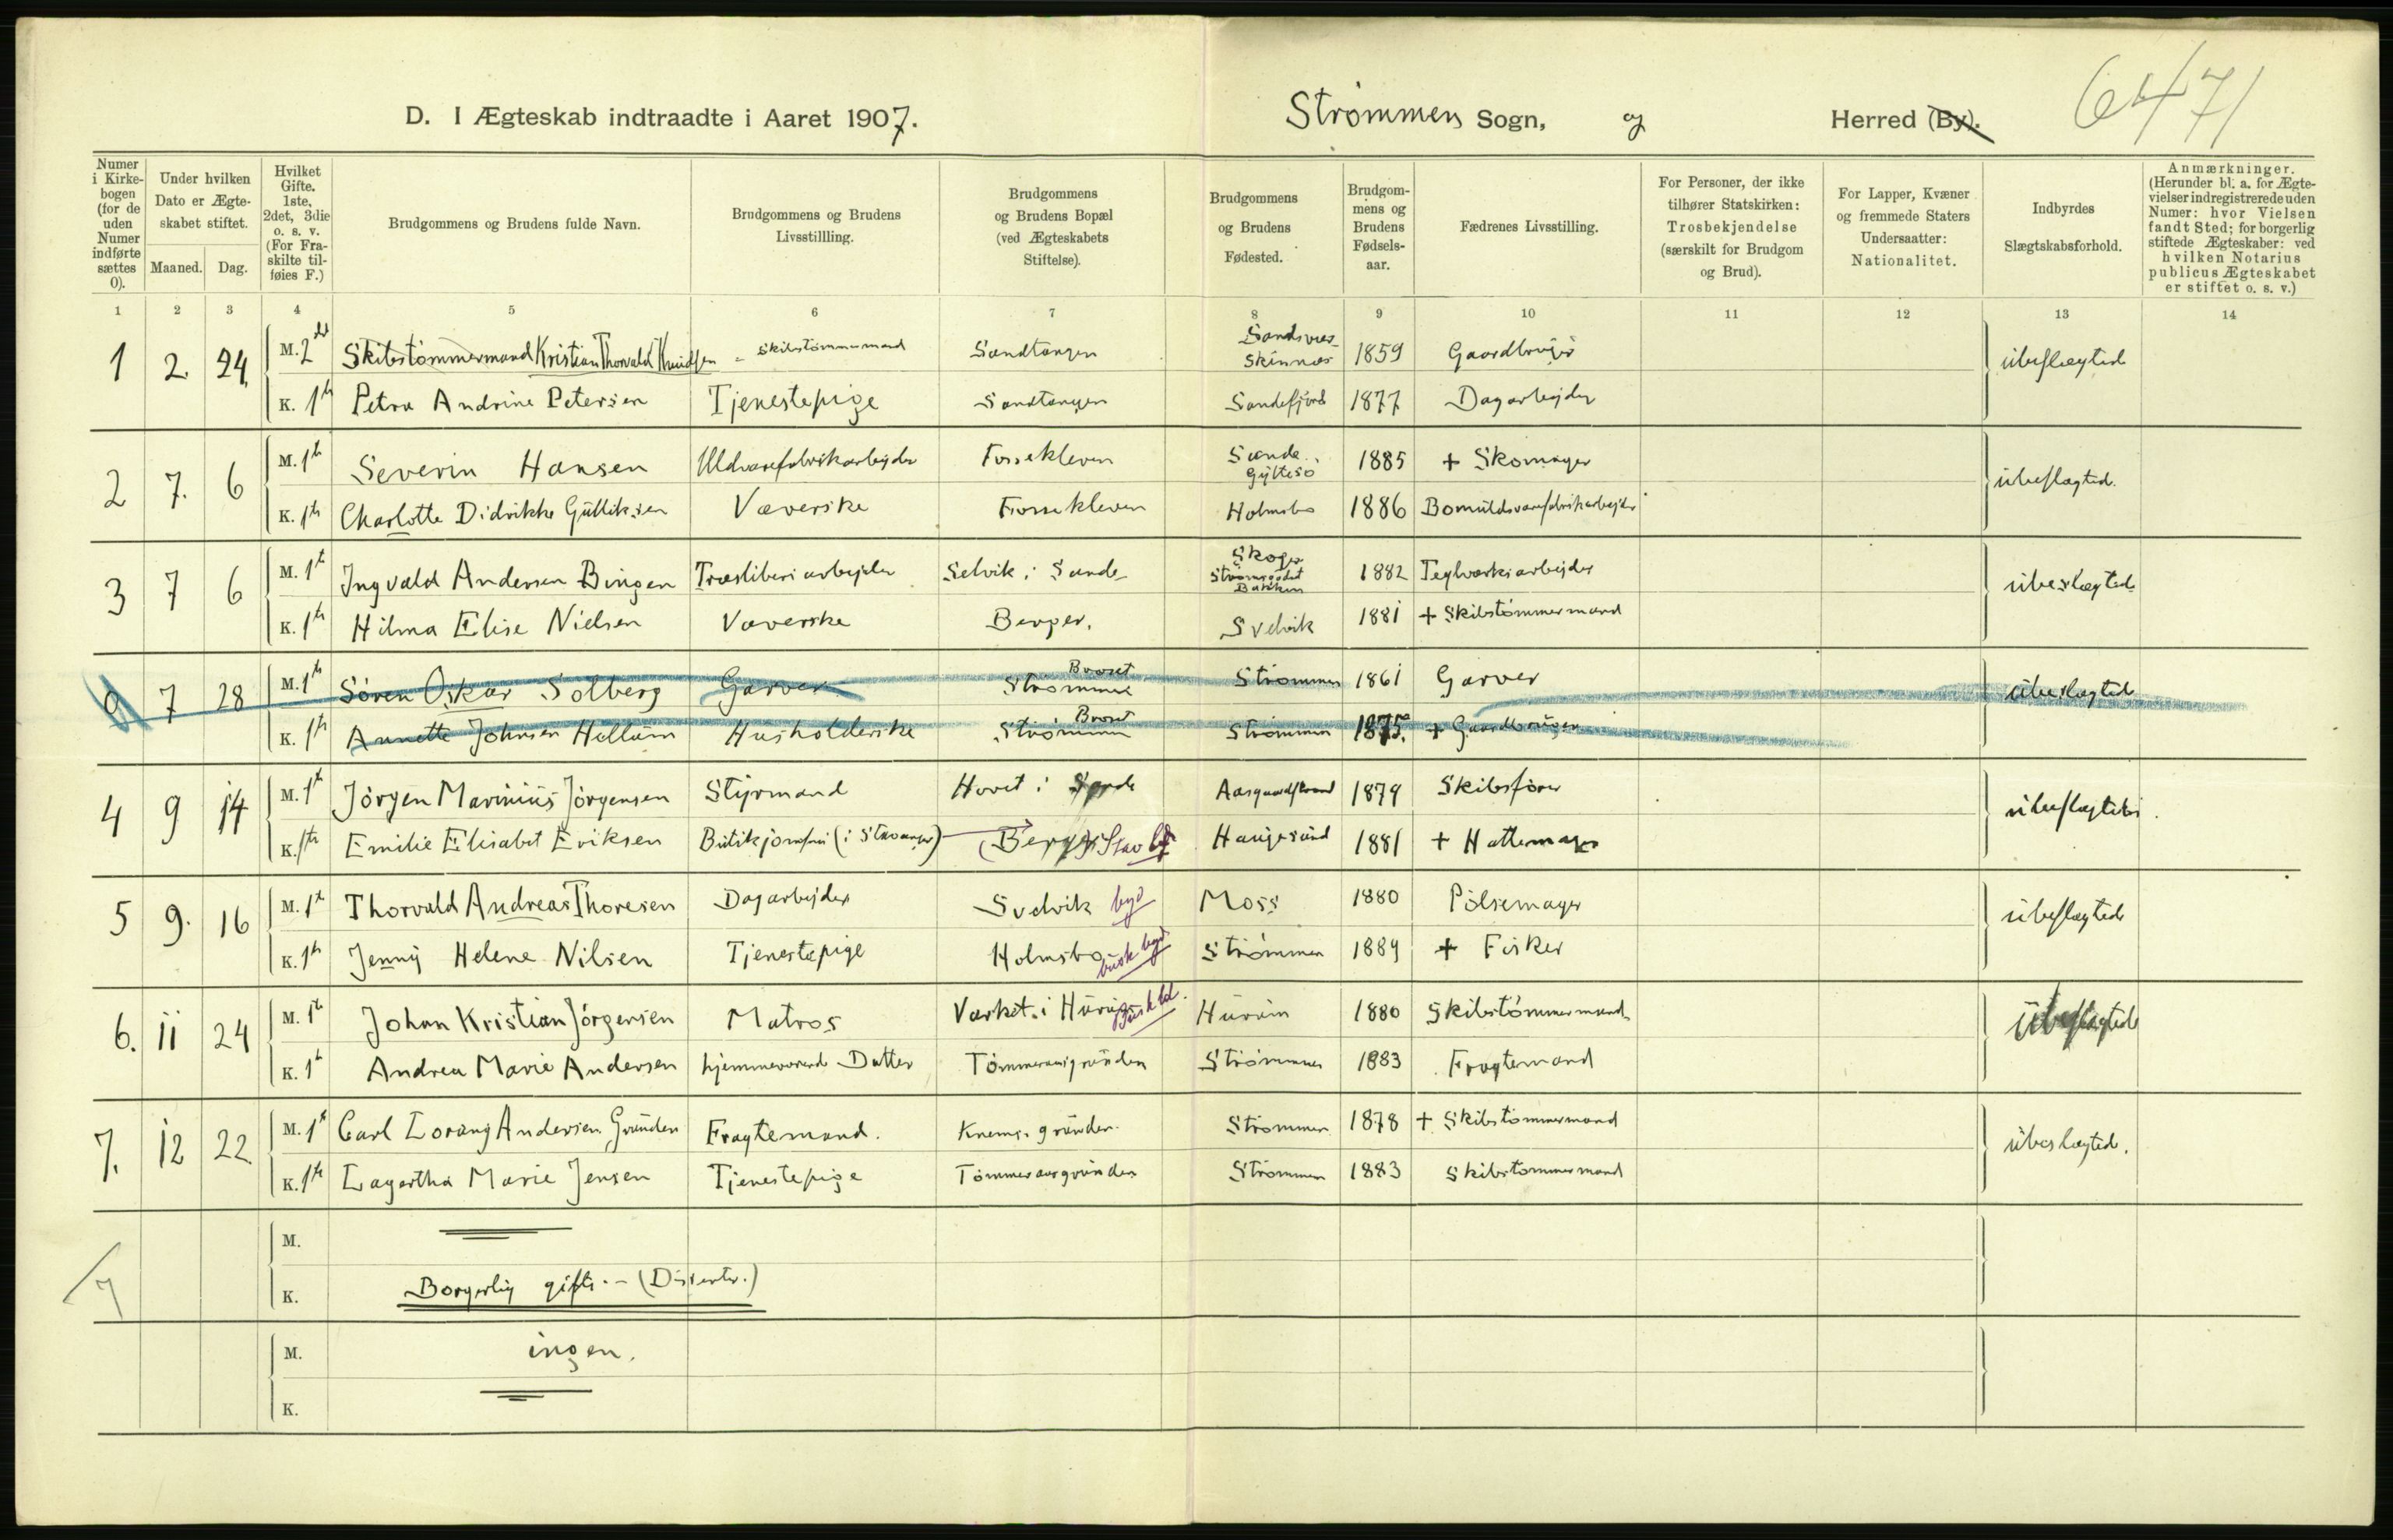 6471
D. I Ægteskab indtraadte i Aaret 1907. Strømmen Sogn, og Herred (By).
Numer i Kirkebogen (for de uden Numer indførte sættes 0).
Under hvilken Dato er Ægteskabet stiftet.
Maaned. Dag.
Hvilket Gifte. 1ste, 2det, 3die o. s. v. (For Fraskilte tilføies F.)
Brudgommens og Brudens fulde Navn.
Brudgommens og Brudens Livsstillling.
Brudgommens og Brudens Bopæl (ved Ægteskabets Stiftelse).
Brudgommens og Brudens Fødested.
Brudgommens og Brudens Fødselsaar.
Fædrenes Livsstilling.
For Personer, der ikke tilhører Statskirken: Trosbekjendelse (særskilt for Brudgom og Brud).
For Lapper, Kvæner og fremmede Staters Undersaatter: Nationalitet.
Indbyrdes Slægtskabsforhold.
Anmærkninger. (Herunder bl. a. for Ægtevielser indregistrerede uden Numer: hvor Vielsen fandt Sted; for borgerlig stiftede Ægteskaber: ved hvilken Notarius publicus Ægteskabet er stiftet o. s. v.)
1 2 3 4 5 6 7 8 9 10 11 12 13 14
1 2. 24. M. 2det Skibstømmermand Kristian Thorvald Knudsen - Skibstømmermand Sandtangen Skinnæs 1859 Gaardbruger ubeslægted
K. 1ste Petra Andrine Petersen Tjenestepige Sandtangen Sandefjord 1877 Dagarbejder
2 7. 6 M. 1ste Severin Hansen Uldvarefabrikarbejder Fossekleven Sande Gylteso 1885 + Skomager ubeslægted.
K. 1ste Charlotte Didrikke Gulliksen Væverske Fossekleven Holmsbo 1886 Bomuldsvarefabrikarbejder
3 7 6 M. 1ste Ingvald Andersen Bingen Træsliberiarbejder Selvik i Sande Skoger Strømsgodset Bakken 1882 Teglværksarbejder ubeslægted
K. 1ste Hilma Elise Nielsen Væverske Berger. Svelvik 1881 + Skibstømmermand
0 7 28 M. 1ste Søren Oskar Solberg Garver Strømmen Strømmen 1861 Garver ubeslægted
K. 1ste Annette Johnsen Hellum Husholderske Strømmen Strømmen 1875. + Gaardbruger
4 9 14 M. 1ste Jørgen Marinius Jørgensen Styrmand Hovet i Sande Aasgaardstrand 1879 Skibsfører ubeslægtede.
K. 1ste Emilie Elisabet Eriksen Butikjomfru (i Stavanger) (Berger) Stav. Haugesund 1881 + Hattemager
5 9. 16 M. 1ste Thorvald Andreas Thoresen Dagarbejder Svelvik byd Moss 1880 Pølsemager ubeslægted
K. 1ste Jenny Helene Nilsen Tjenestepige Holmsbo busk bygd Strømmen 1889 + Fisker
6. 11 24 M. 1ste Johan Kristian Jørgensen Matros Værket i Hurum Busk Hurum 1880 Skibstømmermand ubeslægted
K. 1ste Andrea Marie Andersen hjemmeværende Datter Tømmeraasgrunden Strømmen 1883 Fragtemand
7. 12 22 M. 1ste Carl Lorang Andersen Grunden Fragtemand. Knemsgrunden Strømmen 1878 + Skibstømmermand ubeslægted.
K. 1ste Lagertha Marie Jensen Tjenestepige Tømmeraasgrunden Strømmen 1883 Skibstømmermand
M.
7 K. Borgerlig gifte.- (Dissenter.)
M. ingen.
K.